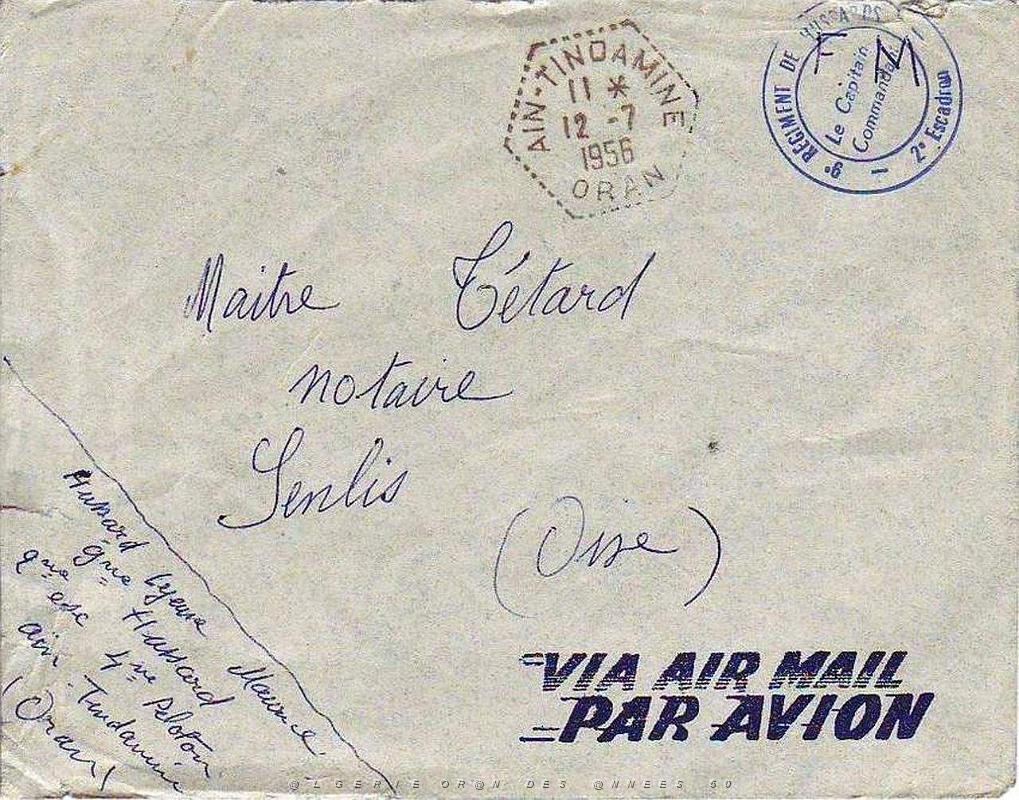 AIN-TINDAMINE
11 *
12 -7
1956
ORAN
9e REGIMENT DE HUSSARDS
Le Capitaine
Commandant
— 2e Escadron
F M
Maitre Tétard
notaire
Senlis
(Oise)
Hussard Maurice
9me Hussard
2me esc 4me Peloton
ain-Tindamine
(Oran)
VIA AIR MAIL
PAR AVION
@LGERIE OR@N DES @NNEES 50